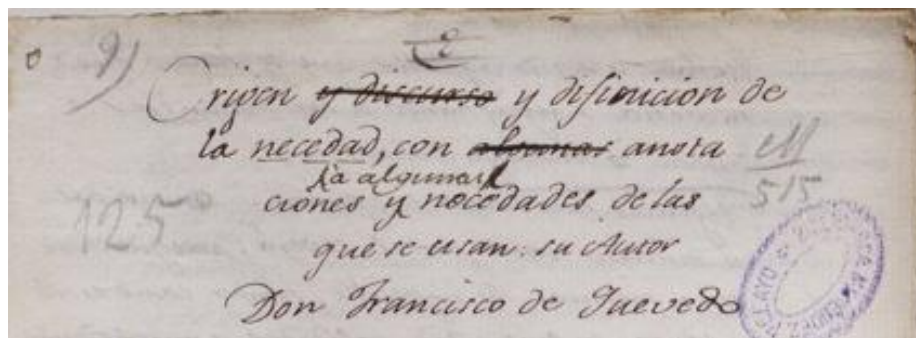 9)
Origen y discurso y difinicion de
la necedad, con algunas anota
à algunas
ciones y necedades de las
que se usan: su Autor
Don Francisco de Quevedo
M
515
125